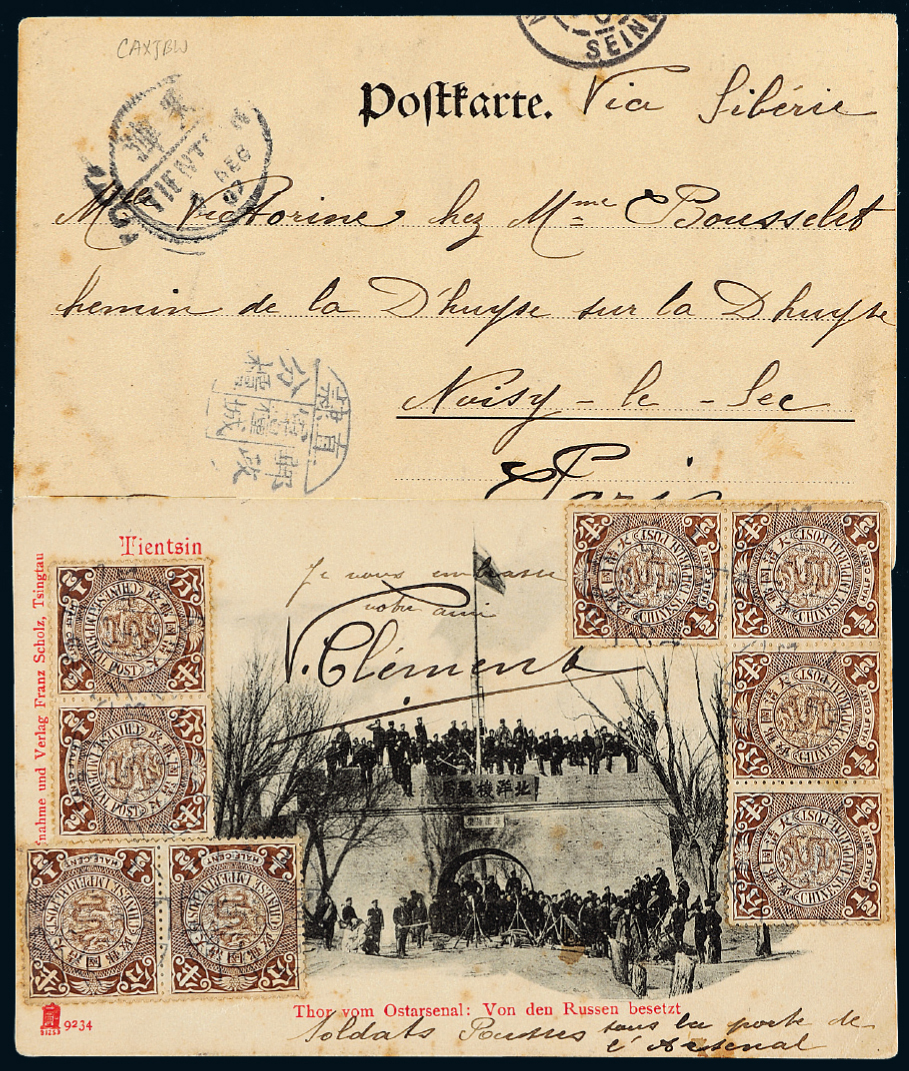 CAXJBW
SEINE
Postkarte. Via Sibérie
TIENTSIN
DEC
07
Mlle Victorine chez Mme Bousselet
chemin de la D'huyse sur la Dhuyse
Noisy-le-Sec
Paris
直隸
郵政
分櫃
Tientsin
Aufnahme und Verlag Franz Scholz, Tsingtau
Je vous embrasse
votre ami
V. Clément
CHINESE IMPERIAL POST
大清國郵政
HALF CENT
1/2
北洋機器局
Thor vom Ostarsenal: Von den Russen besetzt
9234
Soldats Russes sous la porte de
l'Arsenal